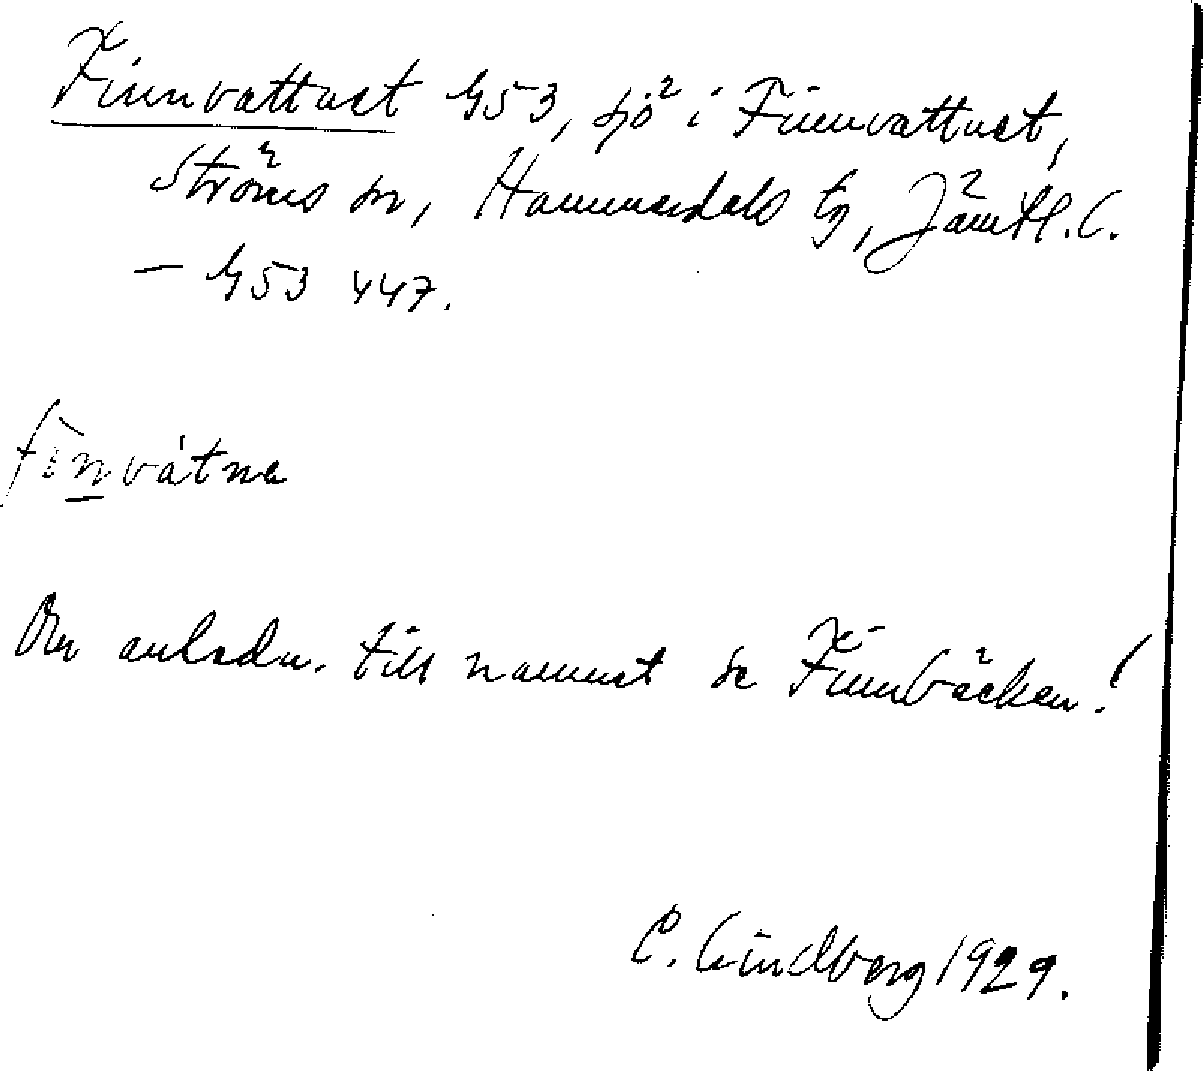 Finnvattnet G53, sjö i Finnvattnet,
Ströms sn, Hammerdals tg, Jämtl. l.
– G53 447.
finvátna
Om anledn. till namnet se Finnbäcken!
C. Lindberg 1929.